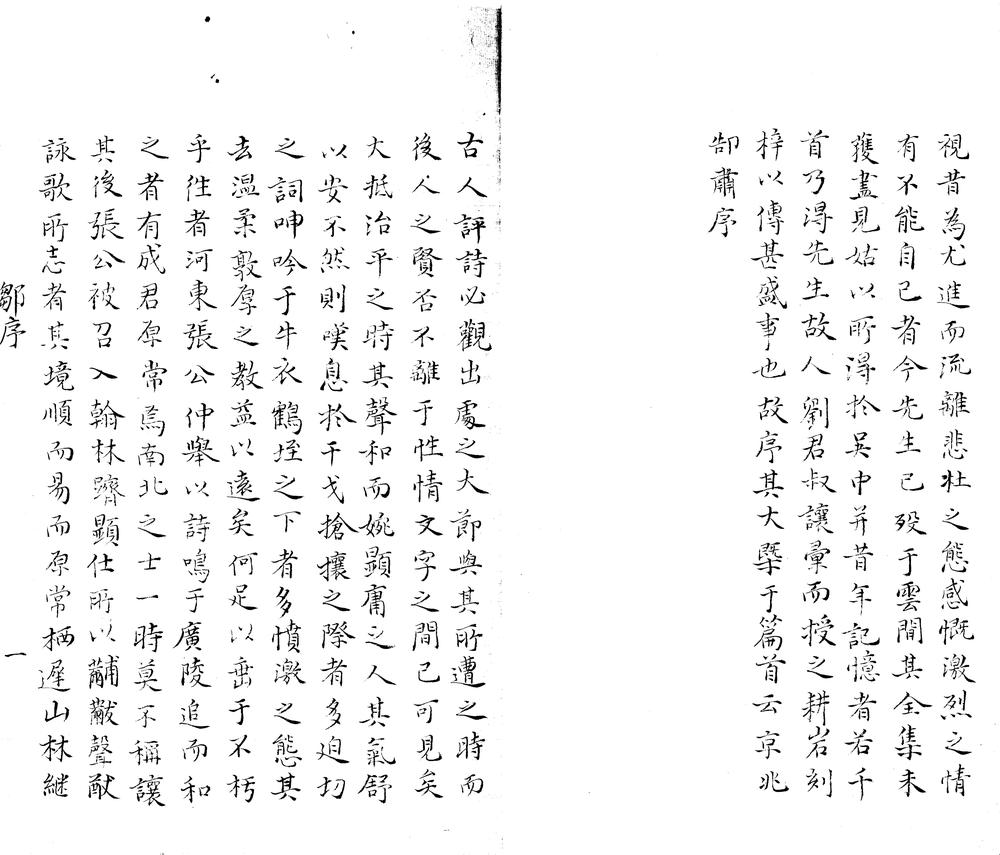 視昔為尤進而流離悲壯之態感慨激烈之情
有不能自已者今先生已歿于雲間其全集未
獲盡見姑以所得於吳中并昔年記憶者若干
首乃得先生故人劉君叔讓彙而授之耕岩刻
梓以傳甚盛事也故序其大槩于篇首云京兆
郜肅序
古人評詩必觀出處之大節與其所遭之時而
後人之賢否不離于性情文字之間已可見矣
大抵治平之時其聲和而婉顯庸之人其氣舒
以安不然則嘆息於干戈搶攘之際者多迫切
之詞呻吟于牛衣鶴垤之下者多憤激之態其
去溫柔敦厚之教益以遠矣何足以垂于不朽
乎徃者河東張公仲舉以詩鳴于廣陵追而和
之者有成君原常焉南北之士一時莫不稱讓
其後張公被召入翰林躋顯仕所以黼黻聲猷
詠歌所志者其境順而易而原常栖遲山林継
鄒序
一